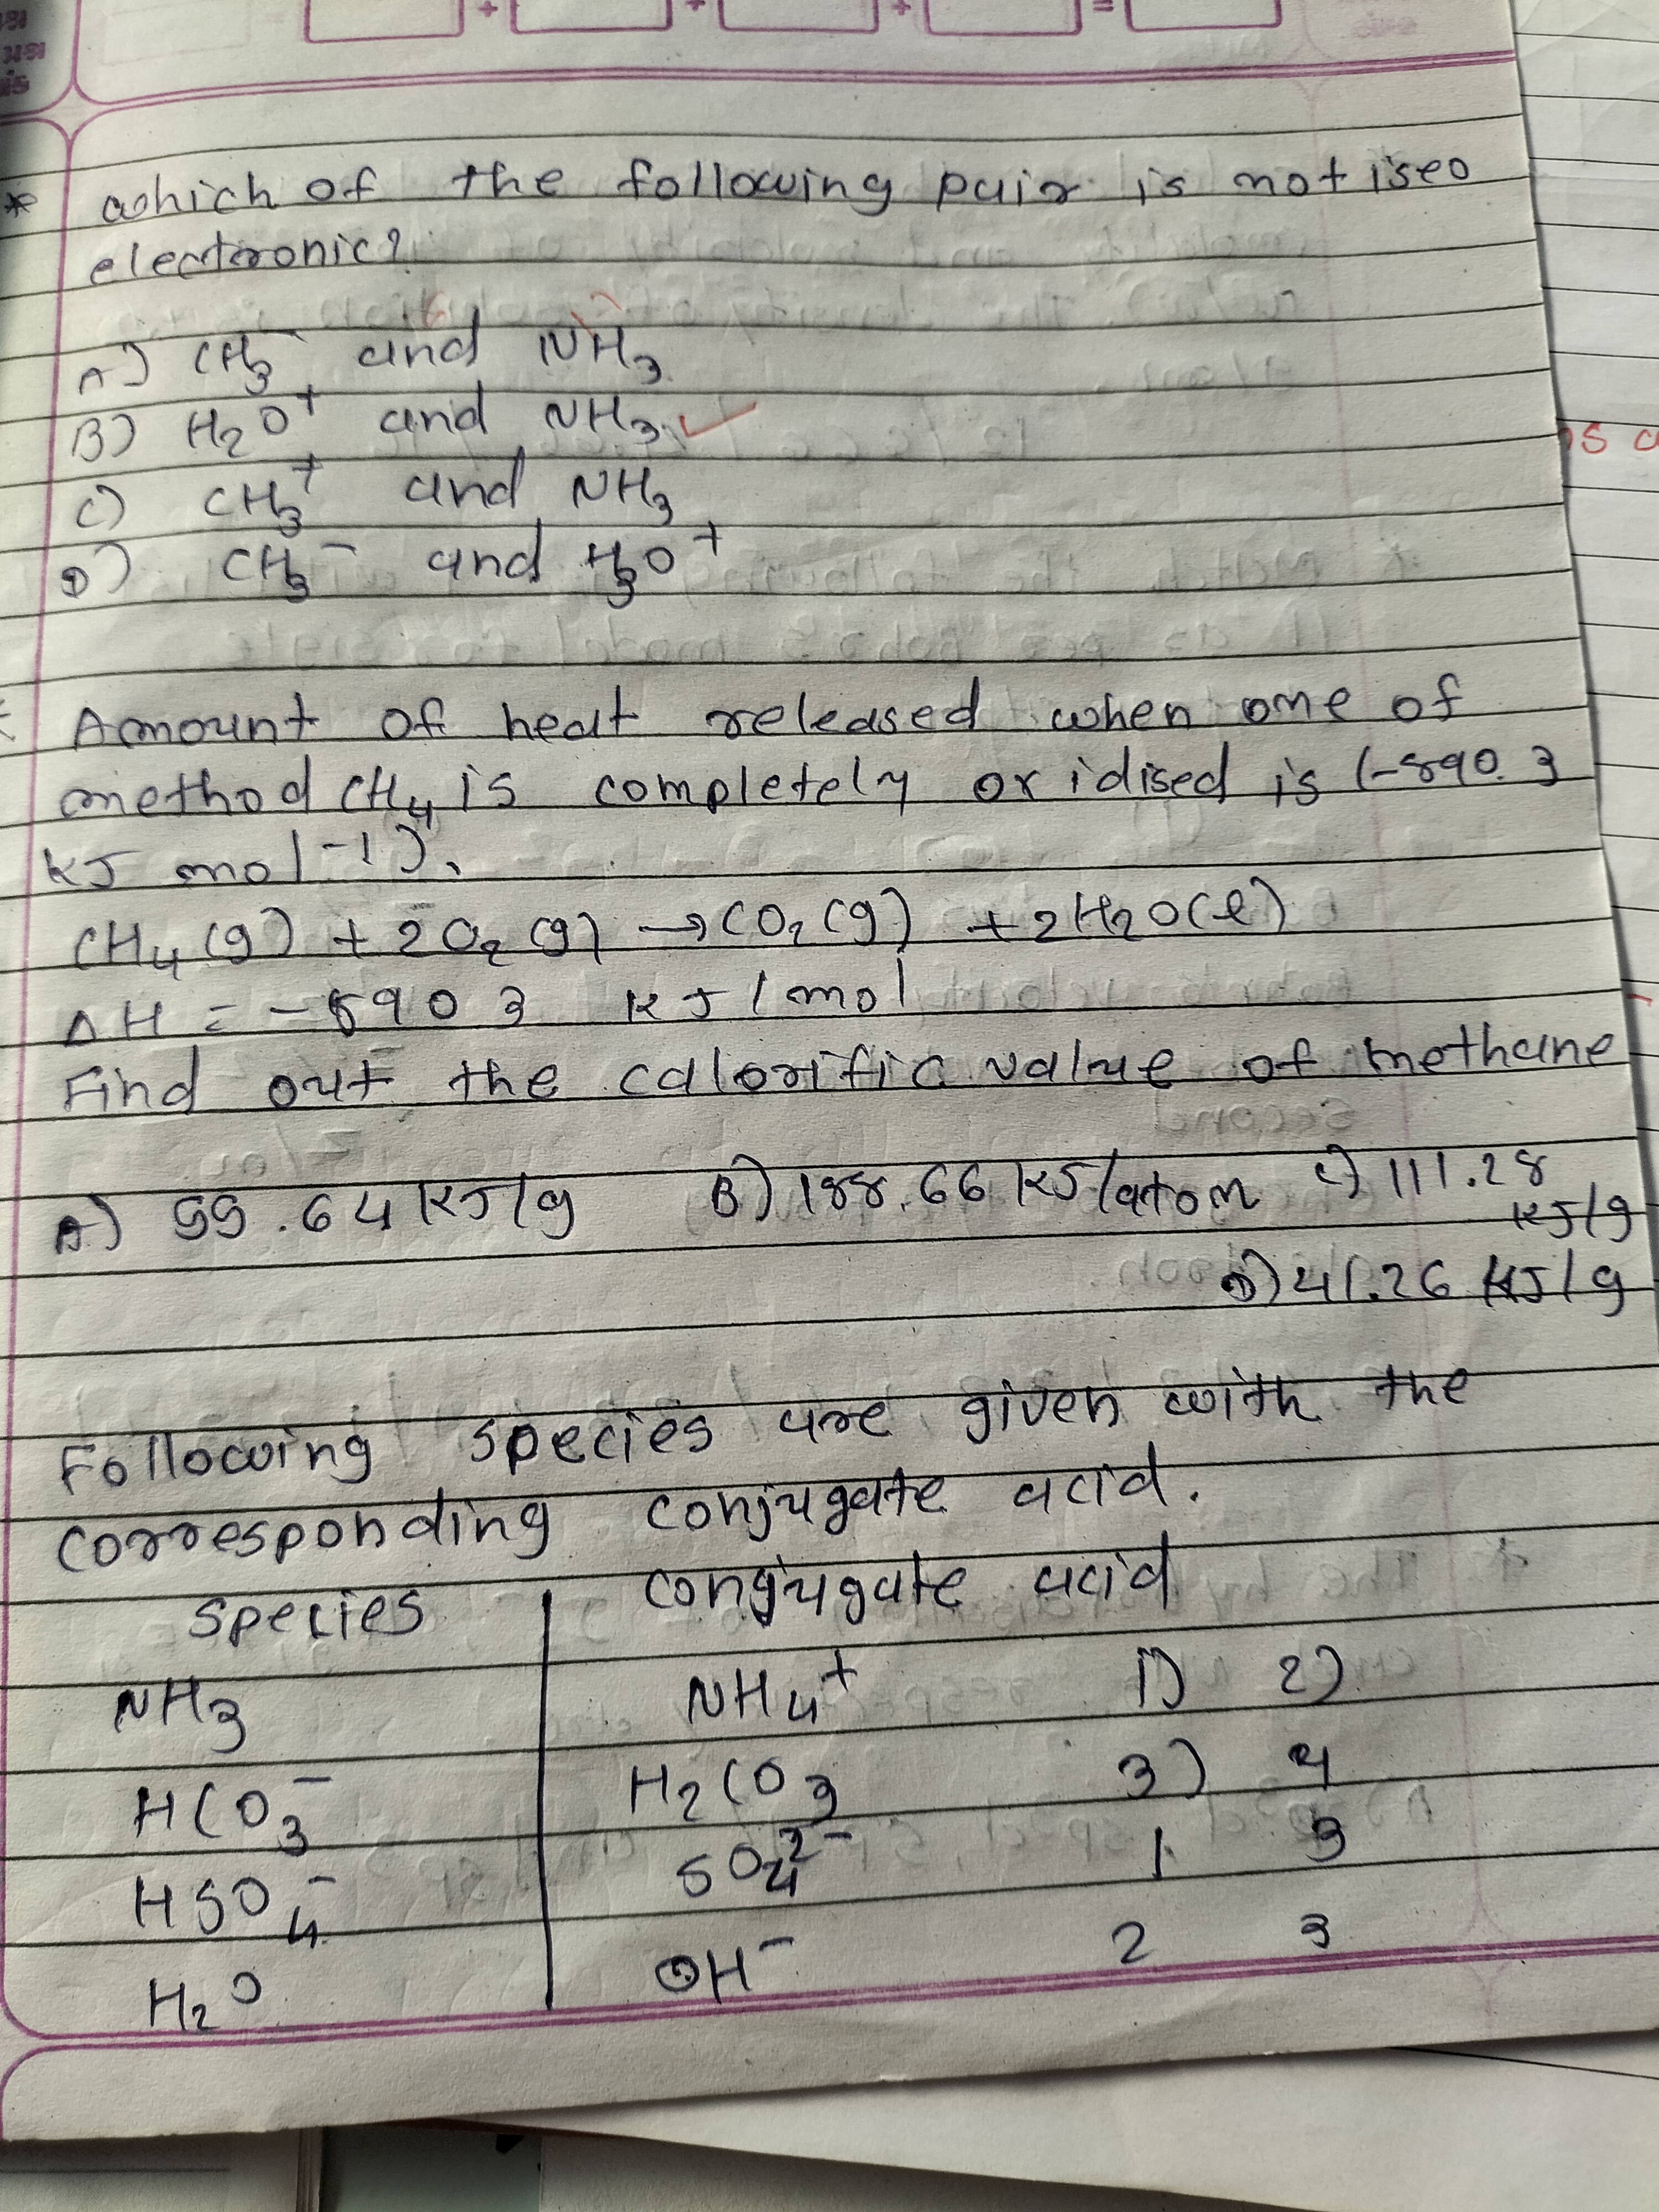 + + + =
* which of the following pair is not iseo
electronic?
A) CH3⁻ and NH3
B) H2O⁺ and NH3 ✓
C) CH3⁺ and NH3
D) CH3⁻ and H3O⁺
Amount of heat released when one of
method CH4 is completely oxidised is (-890.3
KJ mol⁻¹).
CH4(g) + 2O2(g) → CO2(g) + 2H2O(l)
ΔH = -890 3 KJ/mol
Find out the calorific value of methane
A) 55.64 KJ/g B) 188.66 KJ/atom C) 111.28
KJ/g
D) 41.26 KJ/g
Following species are given with the
corresponding conjugate acid.
species conjugate acid
NH3 NH4⁺ 1) 2)
HCO3⁻ H2CO3 3) 4
HSO4⁻ SO4²⁻ 1 3
H2O OH⁻ 2 3